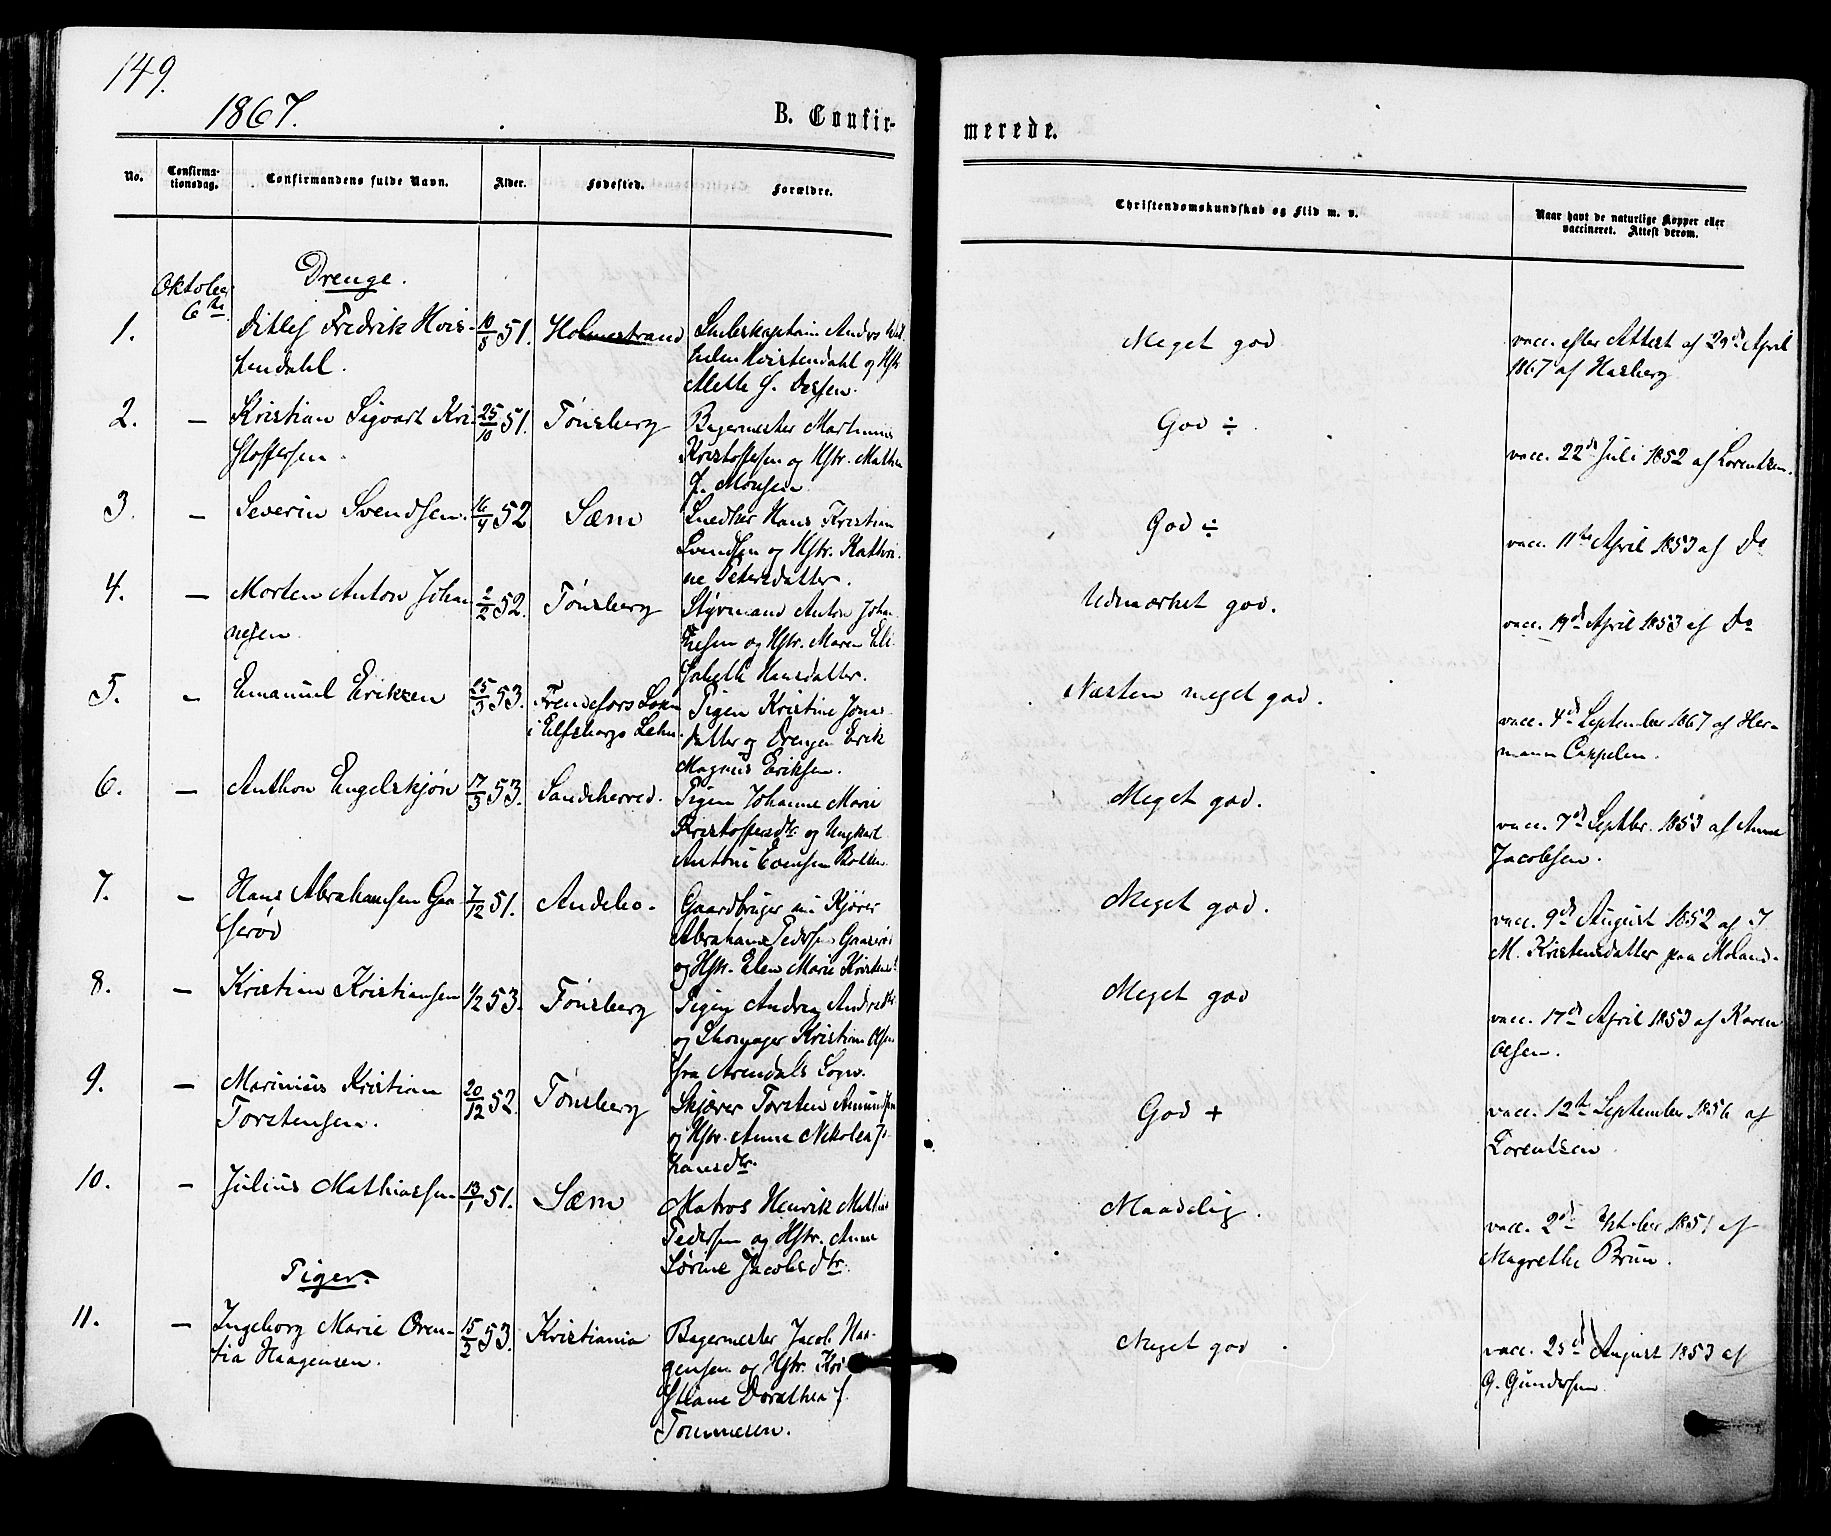 149.
1867.
B. Confir-
merede.
No.
Confirma-
tionsdag.
Confirmandens fulde Navn.
Alder.
Fødested.
Forældre.
Christendomskundskab og Flid m. v.
Naar havt de naturlige Kopper eller
vaccineret. Attest derom.
Oktober
6te
Drenge.
1.
Ditlef Fredrik Kvis-
tendahl.
10/5 51.
Holmestrand
Anders
Kvistendahl og Hstr
Mette f.
Meget god
vacc. efter Attest af 29de April
1867 af Hasberg
2.
—
Kristian Sigvart Kri-
stoffersen.
25/10 51.
Tönsberg
Bagermester Martinius
Kristoffersen og Hstr.
f. Monsen
God ÷
vacc. 22de Juli 1852 af Lorentzen.
3.
—
Severin Svendsen.
16/4 52
Sæm
Snedker Hans Kristian
Svendsen og Hstr. Kathri-
ne Petersdatter.
God ÷
vacc. 11te April 1853 af Do
4.
—
Morten Anton Johan-
nesen.
2/2 52.
Tönsberg
Styrmand Anton Johan-
nesen og Hstr. Maren Eli-
sabeth Hansdatter.
Udmærket god.
vacc. 19de April 1853 af Do
5.
—
Emanuel Eriksen
53.
Frendefors Sokn
i Elfsborgs Lehn.
Pigen Kristine Jonas-
datter og Drengen Erik
Magnus Eriksen.
Næsten meget god.
vacc. 4de September 1867 af Her-
mann Cappelen.
6.
—
Anthon Engelskjøn
17/5 53.
Sandeherred.
Pigen Johanne Marie
Kristoffersdtr og Ungkarl
Anton Evensen
Meget god.
vacc. 7de Septbr. 1853 af Anne
Jacobsen.
7.
—
Hans Abrahamsen Gaa-
serød
7/12 51.
Andebo.
Gaardbruger nu Kjører
Abraham Pedersen Gaaserød
og Hstr. Elen Marie
Meget god.
vacc. 9de August 1852 af J.
M. Kristensdatter paa Moland.
8.
—
Kristian Kristiansen
1/2 53.
Tönsberg
Pigen Andrea
og Skomager Kristian Olsen
fra Arendals Sogn.
Meget god
vacc. 17de April 1853 af Karen
Olsen.
9.
—
Marinius Kristian
Torstensen.
20/12 52.
Tönsberg
Torsten Amundsen
og Hstr. Anne Nikolea Jo-
hansdtr.
God +
vacc. 12te September 1856 af
Lorentsen
10.
—
Julius Mathiassen
13/1 51.
Sæm
Matros Henrik
Pedersen og Hstr. Anne
Sørine Jacobsdtr.
Maadelig.
vacc. 2de Oktober 1851 af
Magrethe Brun.
Piger.
11.
—
Ingeborg Marie Oren-
tia Haagensen.
15/2 53.
Kristiania
Bagermester Jacob Haa-
gensen og Hstr. Kri-
stiane Dorothea f.
Tommesen.
Meget god.
vacc. 25de August 1853 af
G. Gundersen